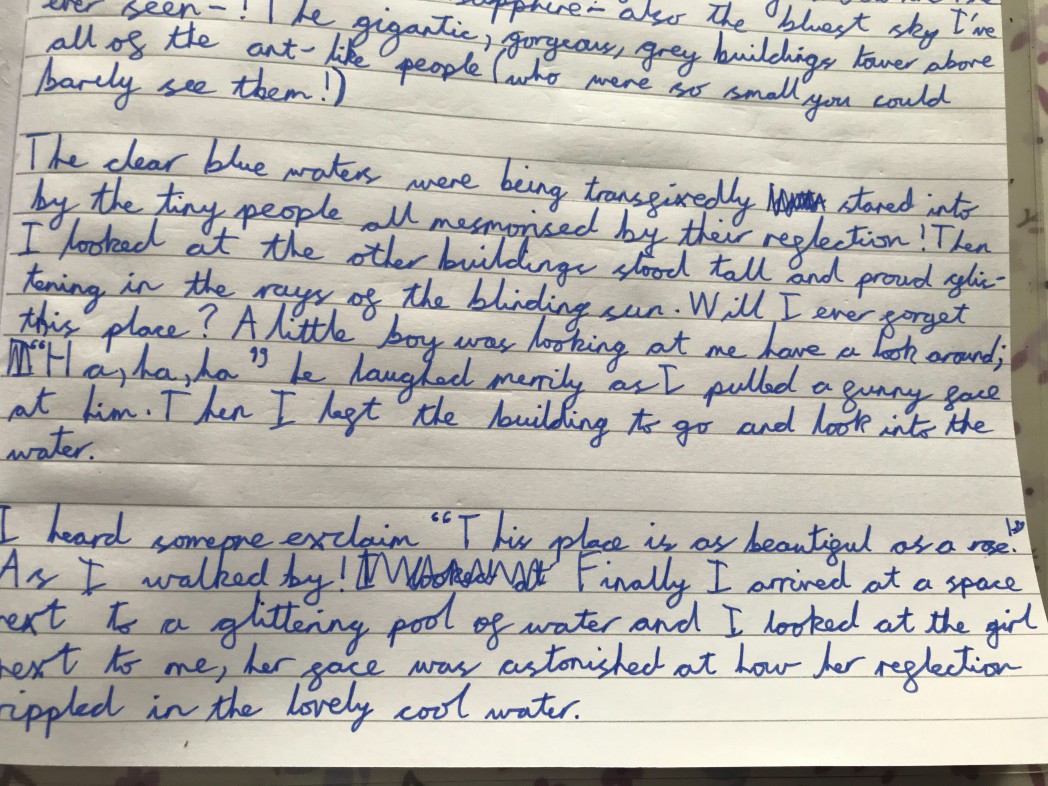 ever seen-! The gigantic, gorgeous, grey buildings tower above
sapphire- also the bluest sky I've
all of the ant-like people (who were so small you could
barely see them!)
The clear blue waters were being transfixedly stared into
by the tiny people all mesmorised by their reflection! Then
I looked at the other buildings stood tall and proud glis-
tening in the rays of the blinding sun. Will I ever forget
this place? A little boy was looking at me have a look around;
"Ha, ha, ha" he laughed merrily as I pulled a funny face
at him. Then I left the building to go and look into the
water.
I heard someone exclaim "This place is as beautiful as a rose!"
As I walked by! Finally I arrived at a space
next to a glittering pool of water and I looked at the girl
next to me, her face was astonished at how her reflection
rippled in the lovely cool water.